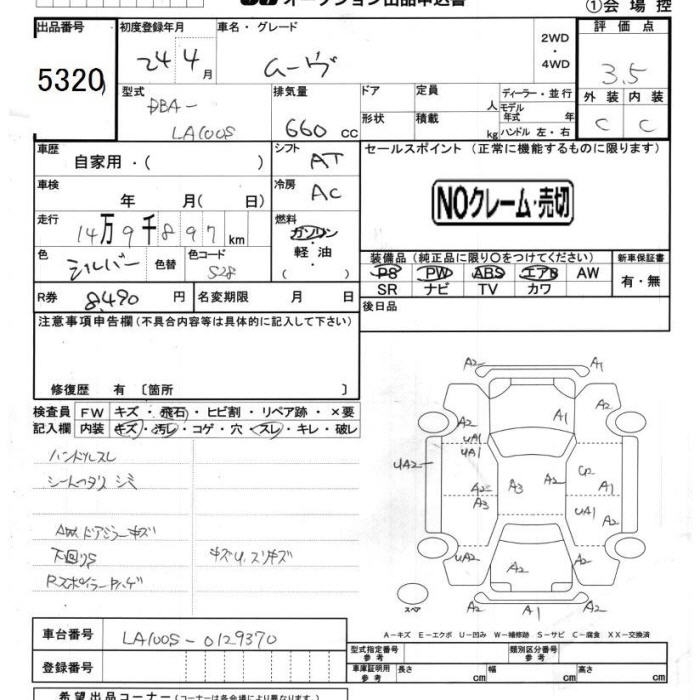 オークション出品申込書
①会場控
出品番号
5320
初度登録年月
24 4月
車名・グレード
ムーヴ
2WD
・
4WD
評価点
3.5
外装 内装
C C
型式
DBA-
LA100S
排気量
660 cc
ドア
形状
定員
人
積載
kg
ディーラー・並行
モデル年式 年
ハンドル 左・右
車歴
自家用・( )
シフト
AT
車検
年 月( 日)
冷房
AC
走行
14万9千897km
燃料
ガソリン
・
軽油
( )
色
シルバー
色替
色コード
S28
R券
8,490円
名変期限 月 日
セールスポイント(正常に機能するものに限ります)
NOクレーム・売切
装備品(純正品に限り○をつけてください)
新車保証書
PS PW ABS エアB AW
SR ナビ TV カワ
有・無
後日品
注意事項申告欄(不具合内容等は具体的に記入して下さい)
修復歴 有〔箇所 〕
検査員記入欄
FW キズ・飛石・ヒビ割・リペア跡・×要
内装 キズ・汚レ・コゲ・穴・スレ・キレ・破レ
ハンドルスレ
シートヘタリ シミ
AW. ドアミラーキズ
下回りS
キズU.スリキズ
Rスポイラーハゲ
A2 A1
A2 A1 A2
UA1
UA1
UA2
A2
A3
A3
A2
C2
A1
UA1
A2
UA2
A2 A2
A2 A1 A2
スペア
A-キズ E-エクボ U-凹み W-補修跡 S-サビ C-腐食 XX-交換済
車台番号
LA100S-0129370
登録番号
型式指定番号
参考
類別区分番号
参考
車庫証明用
参考
長さ cm
幅 cm
高さ cm
希望出品コーナー(コーナーは各会場により異なります。)